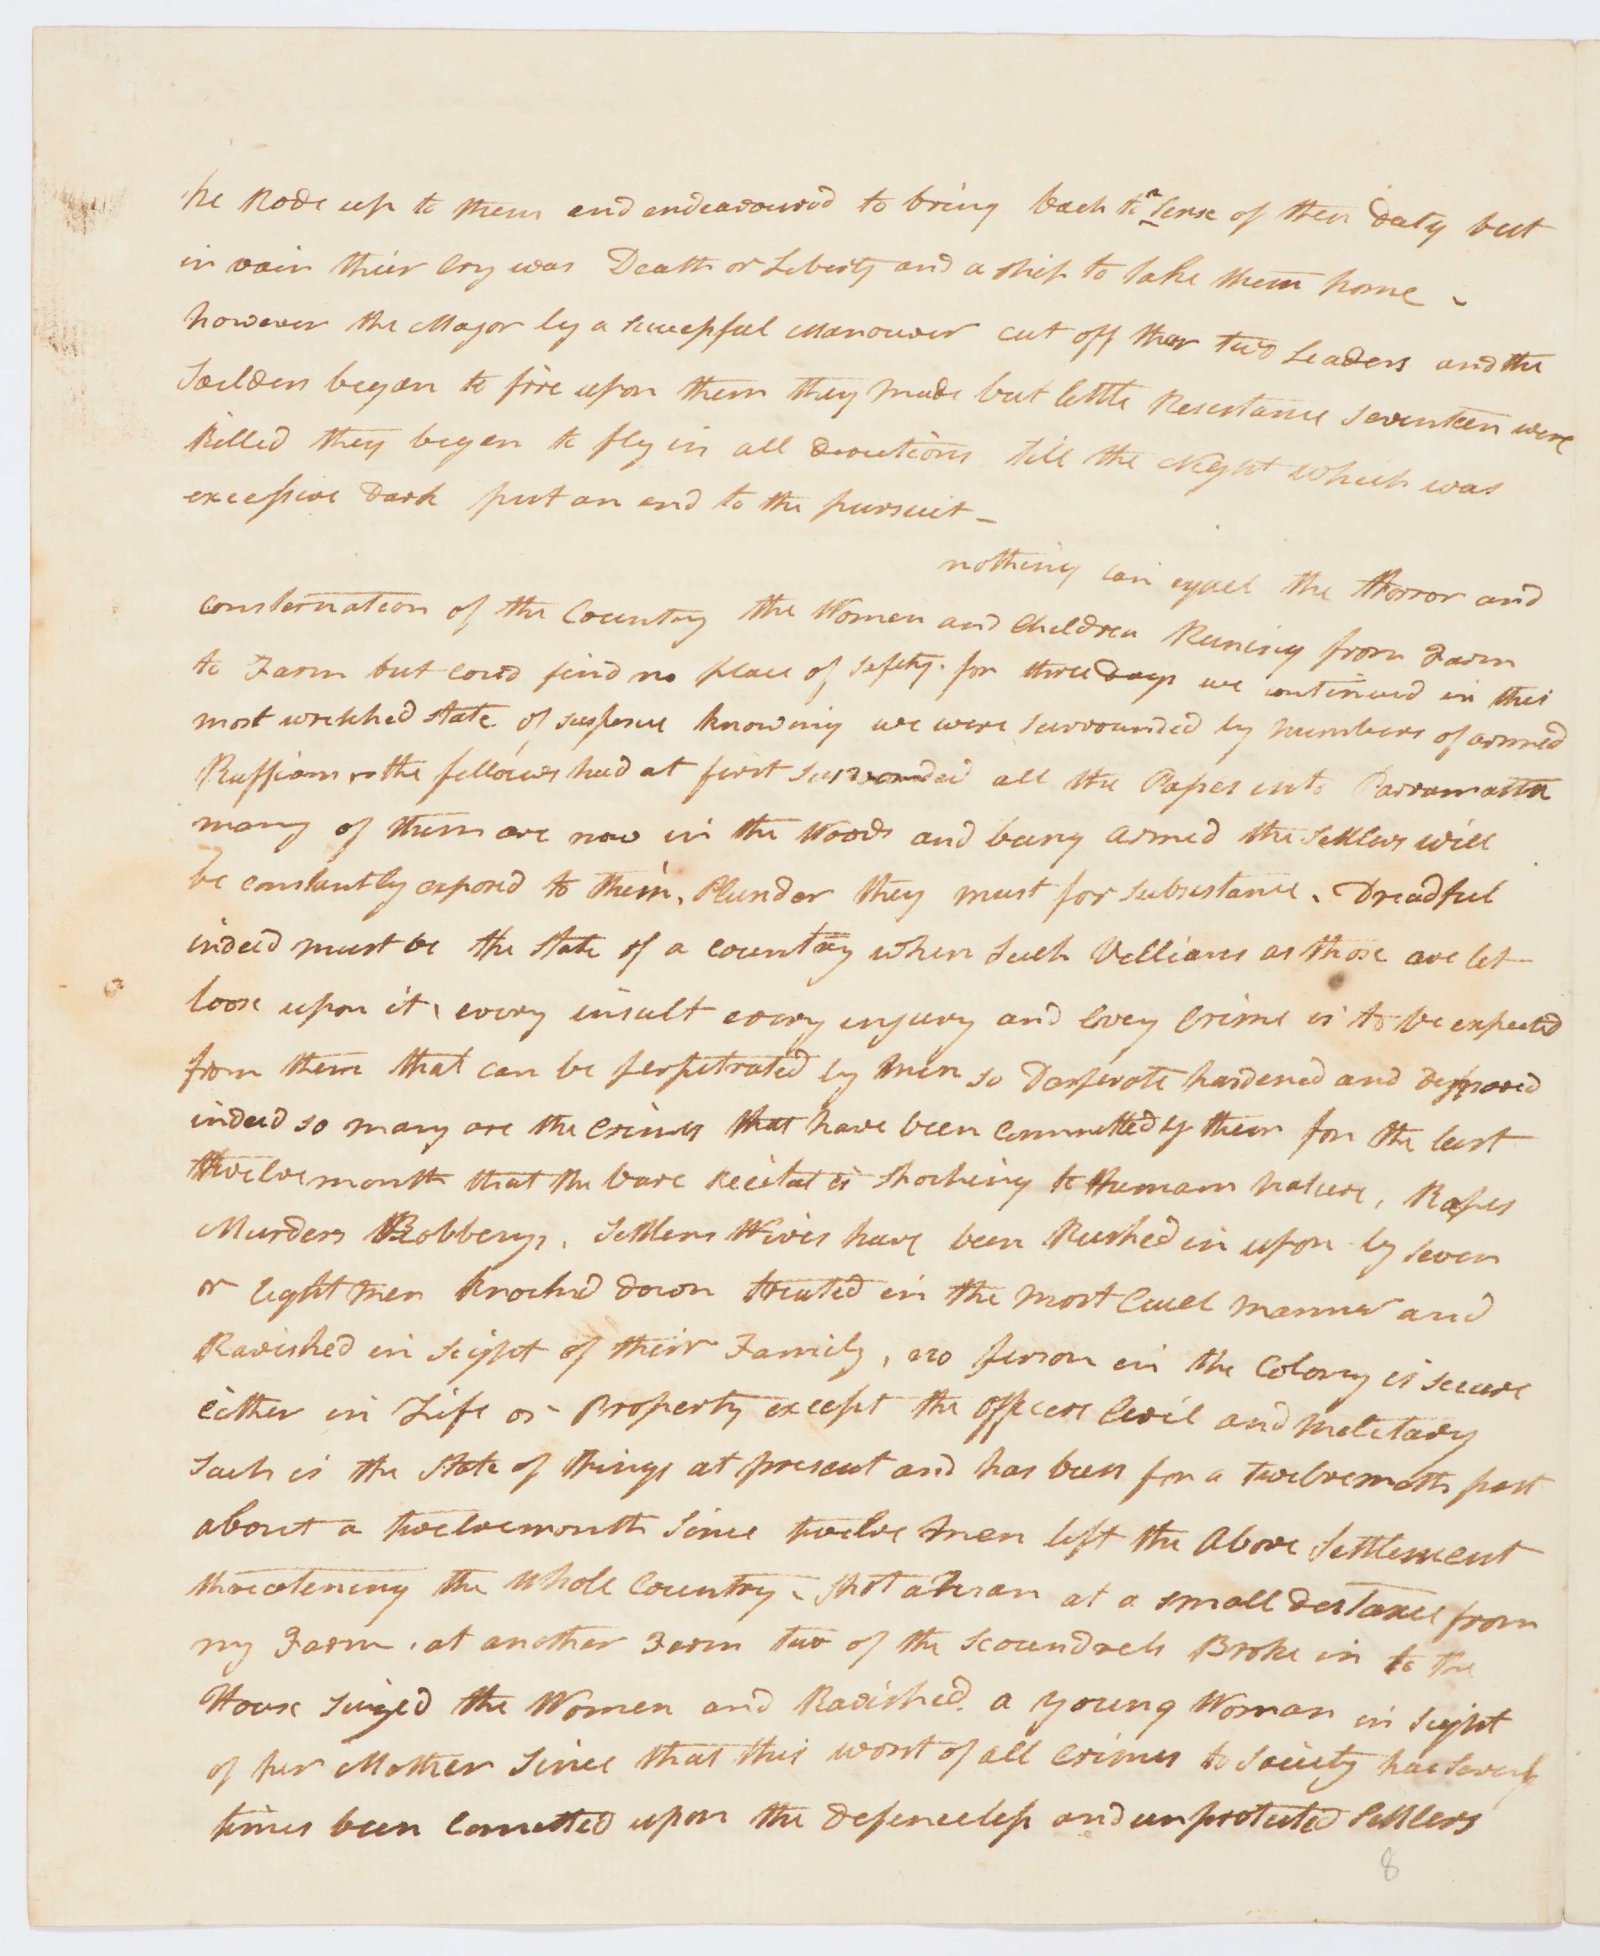 he Rode up to them and endeavoured to bring back to a Sense of their Duty but
in vain their Cry was Death or Liberty and a ship to take them home -
however the Major by a successful Manouver cut off ther two Leaders and the
Soilders began to fire upon them they made but little Resestance Seventeen were
Killed they began to fly in all directions till the Night which was
excessive Dark put an end to the pursuit -
nothing can equel the Horror and
consternation of the Country the Women and Children Runing from Farm
to Farm but could find no place of Safety. for three Days we continued in this
most wretched state of suspence knowing we were surrounded by numbers of armed
Ruffians the fellows had at first surrounded all the Passes into Parramatta
many of them are now in the Woods and being armed the Settlers will
be constantly exposed to them, Plunder they must for subsistance. Dreadful
indeed must be the State of a country when such Villians as those are let
loose upon it, every insult every injury and Evey Crime is to be expected
from them that can be perpetrated by Men so Desperate hardened and depraved
indeed so many are the Crimes that have been Committed by them for the last
twelvemonth that the bare Recital is shocking to Humam Nature, Rapes
Murders Robberys, Settlers Wives have been Rushed in upon by seven
or Eight Men knocked down treated in the most Cruel manner and
Ravished in sight of their Family, no person in the Colony is secure
either in Life or Property except the officers Civil and Meletary
Such is the State of things at present and has been for a twelvemoth past
about a twelvemonth since twelve Men left the Above Settlement
threatening the whole Country, shot a Man at a small distance from
my Farm, at another Farm two of the Scoundrels Broke in to the
House Seized the Women and Ravished a Young Woman in Sight
of her Mother Since that this worst of all Crimes to Society has several
times been Cometted upon the defenceless and unprotected Settlers
8